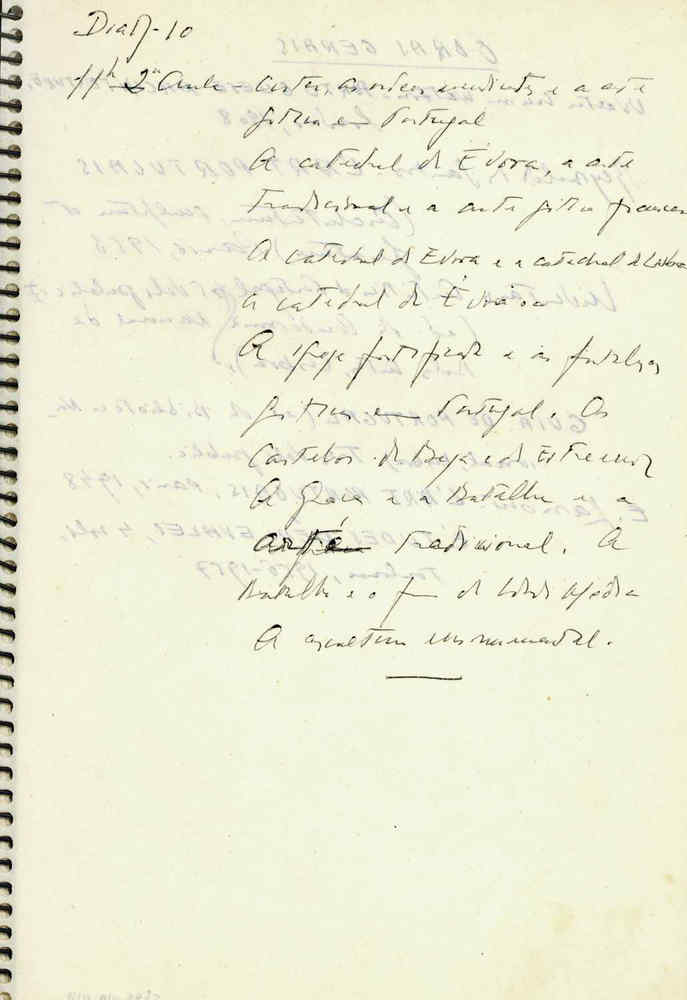 Dia 17-10
11h 2ª Aula - as ordens mendicantes e a arte
gótica em Portugal
A catedral de Évora, a arte
tradicional e a arte gótica francesa
A catedral de Évora e a catedral de Lisboa
a catedral de Évora
A igreja fortificada e as fortalezas
góticas em Portugal. Os
Castelos de Beja e de Estremoz
A Graça e a Batalha e a
arte tradicional. A
Batalha e o fim da Idade Média
A escultura monumental.